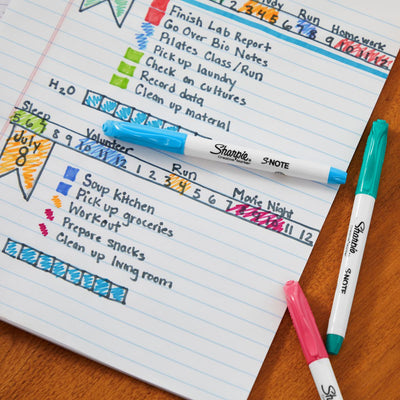 Study Run Homework
2 3 4 5 6 7 8 9 10 11 12
Finish Lab Report
Go Over Bio Notes
Pilates Class/Run
Pick up laundry
Check on cultures
Record data
Clean up material
H2O
Sleep Volunteer Run Movie Night
5 6 7 8 9 10 11 12 1 2 3 4 5 6 7 8 9 10 11 12
July
8
Soup Kitchen
Pick up groceries
Workout
Prepare snacks
Clean up living room
Sharpie S·NOTE
Sharpie S·NOTE
Sharpie